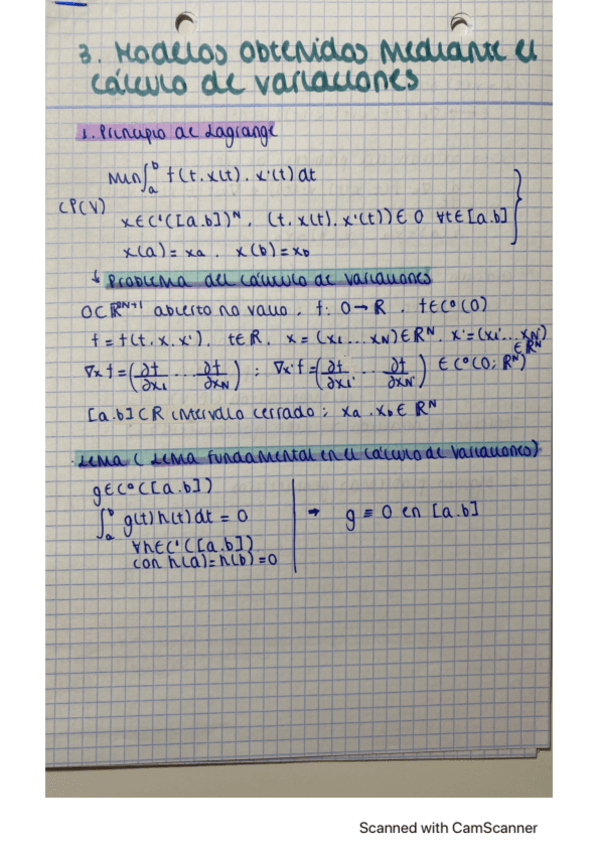 3. Modelos obtenidos mediante el
cálculo de variaciones
1. Principio de Lagrange
Min ∫_a^b f(t, x(t), x'(t)) dt
(P(V)
x ∈ C¹([a,b])^N, (t, x(t), x'(t)) ∈ O ∀t ∈ [a,b]
x(a) = xa, x(b) = xb
↳ Problema del cálculo de variaciones
O ⊂ R^{2N+1} abierto no vacío, f: O → R, f ∈ C⁰(O)
f = f(t, x, x'), t ∈ R, x = (x₁...x_N) ∈ R^N, x' = (x₁'...x_N') ∈ R^N
∇x f = (∂f/∂x₁ ... ∂f/∂x_N) ; ∇x' f = (∂f/∂x₁' ... ∂f/∂x_N') ∈ C⁰(O; R^N)
[a,b] ⊂ R intervalo cerrado; xa, xb ∈ R^N
Lema (Lema fundamental en el cálculo de variaciones)
g ∈ C⁰([a,b])
∫_a^b g(t) h(t) dt = 0 → g ≡ 0 en [a,b]
∀h ∈ C¹([a,b])
con h(a) = h(b) = 0
Scanned with CamScanner